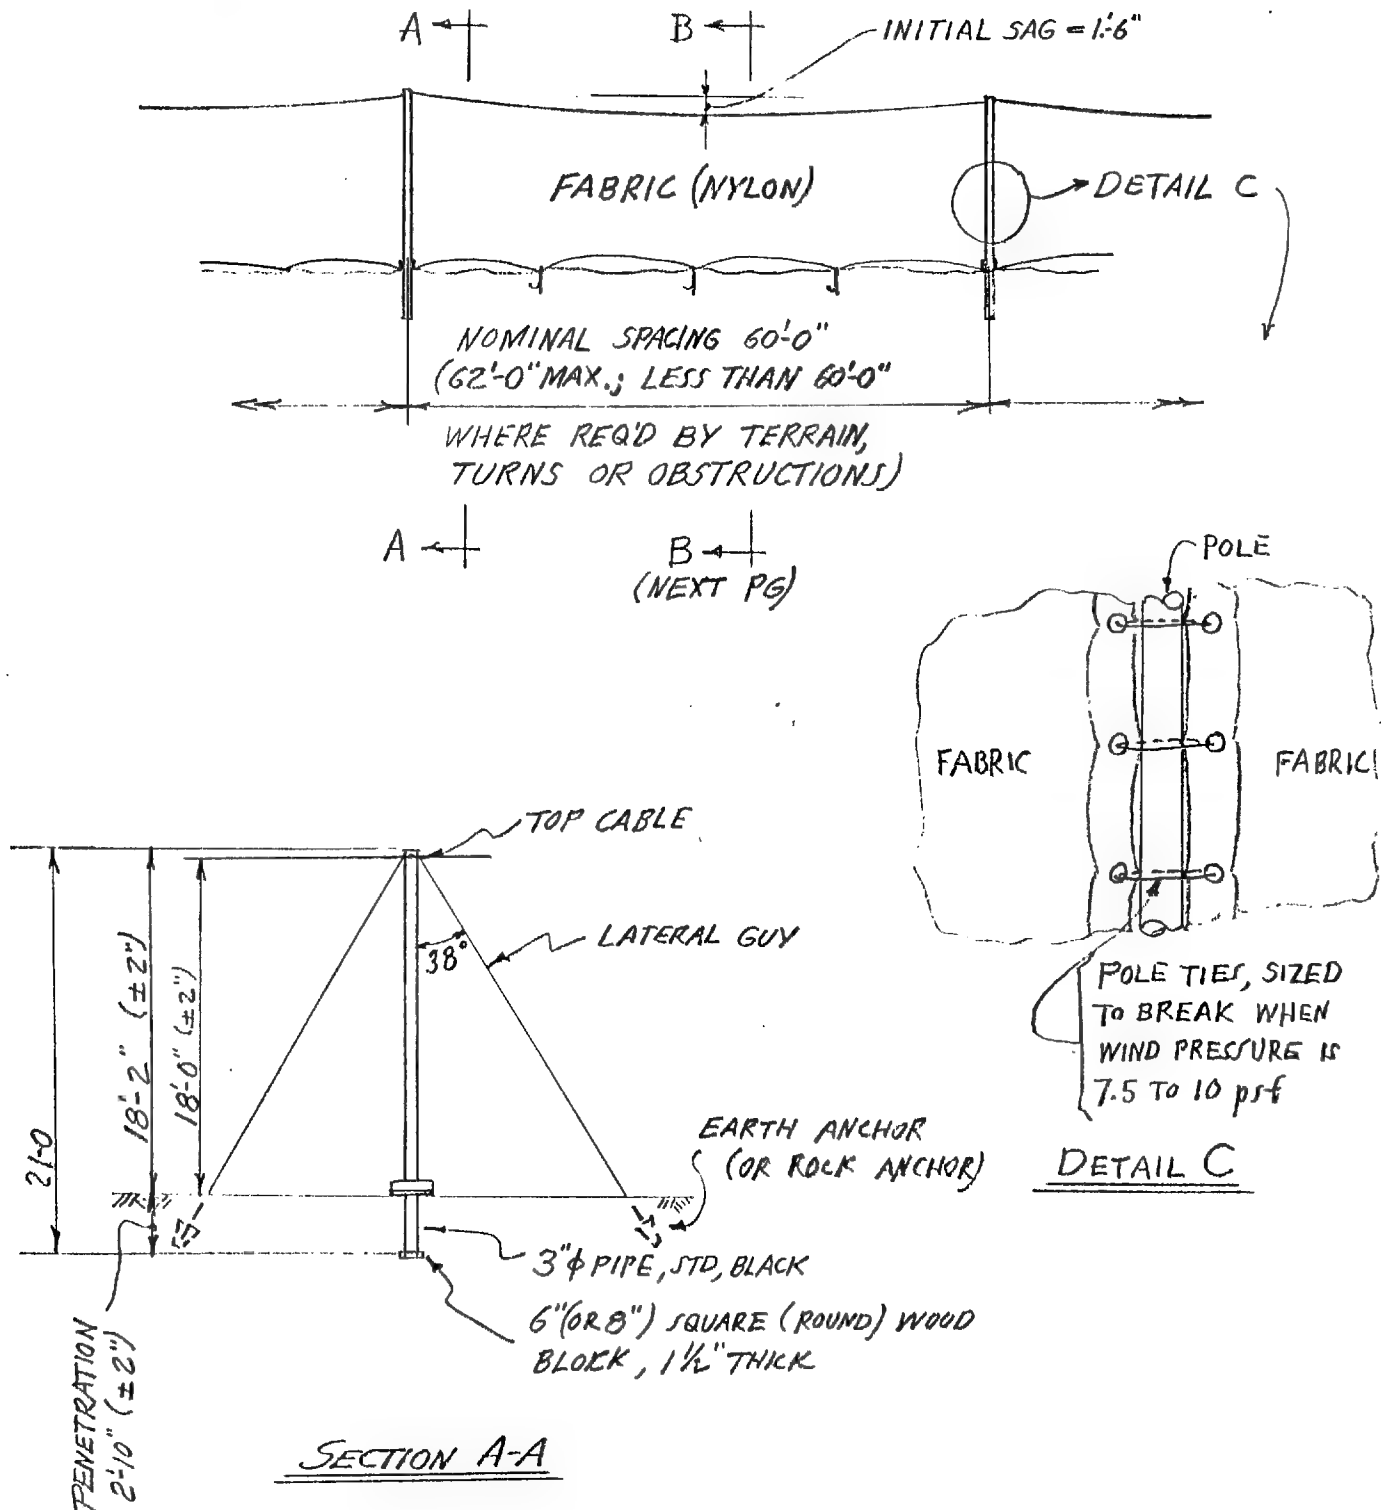 A
B
INITIAL SAG = 1'-6"
FABRIC (NYLON)
DETAIL C
NOMINAL SPACING 60'-0"
(62'-0" MAX.; LESS THAN 60'-0"
WHERE REQ'D BY TERRAIN,
TURNS OR OBSTRUCTIONS)
A
B
(NEXT PG)
POLE
FABRIC
FABRIC
POLE TIES, SIZED
TO BREAK WHEN
WIND PRESSURE IS
7.5 TO 10 psf
DETAIL C
TOP CABLE
LATERAL GUY
38°
21-0
18'-2" (±2")
18'-0" (±2")
EARTH ANCHOR
(OR ROCK ANCHOR)
3"ϕ PIPE, STD, BLACK
6"(OR 8") SQUARE (ROUND) WOOD
BLOCK, 1 1/2" THICK
PENETRATION
2'-10" (±2")
SECTION A-A